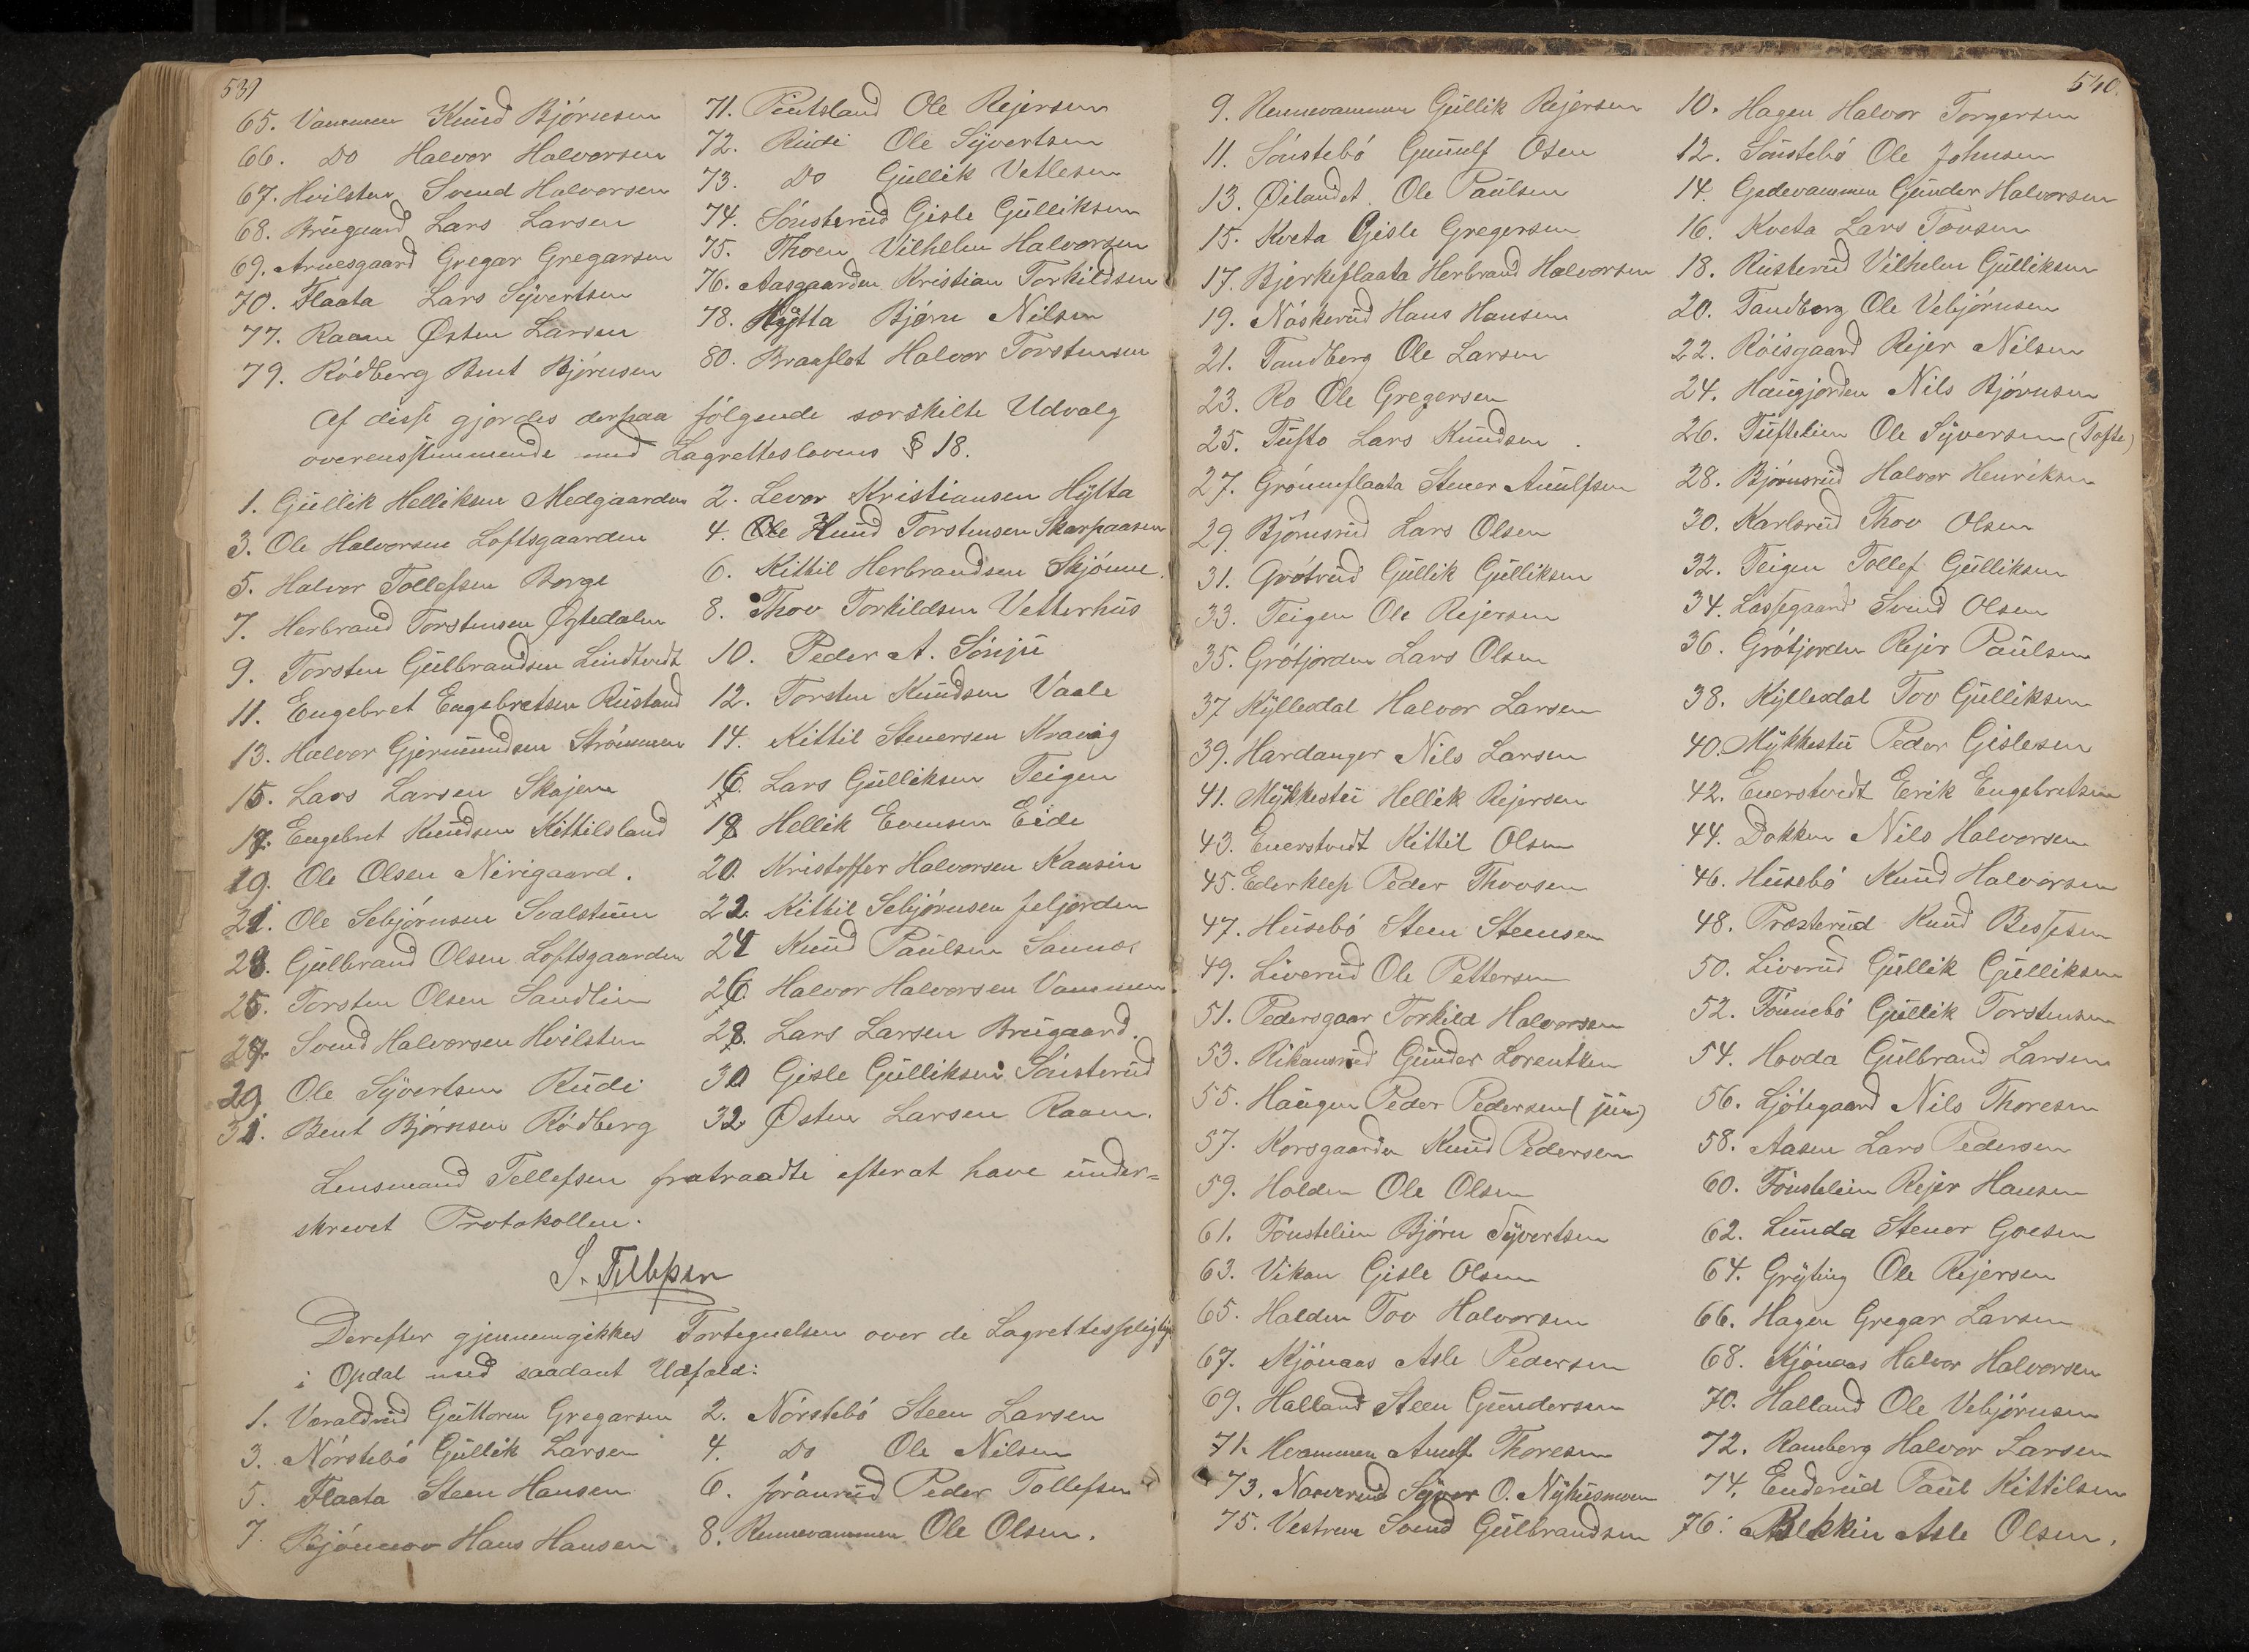 539
65. Vammen Knud Bjørnsen 71. Pentsland Ole Rejersen
66. Do Halvor Halvorsen 72. Rudi Ole Syvertsen
67. Hvilsten Svend Halvorsen 73. Do Gullik Vetlesen
68. Brugaard Lars Larsen 74. Sønsterud Gisle Gulliksen
69. Arnesgaard Gregar Gregarsen 75. Thoen Vilhelm Halvorsen
70. Flaata Lars Syvertsen 76. Aasgaarden Kristian Torkildsen
77. Raaen Østen Larsen 78. Hytta Bjørn Nilsen
79. Rødberg Bent Bjørnsen 80. Braaflot Halvor Torstensen
Af disse gjordes derpaa følgende særskilte Udvalg
overensstemmende med Lagretteslovens § 18.
1. Gullik Helliksen Medgaarden 2. Levor Kristiansen Hytta
3. Ole Halvorsen Loftsgaarden 4. Knud Torstensen Skarpaasen
5. Halvor Tollefsen Borge 6. Kittil Herbrandsen Skjønne.
7. Herbrand Torstensen Øgtedalen 8. Thov Torkildsen Vetterhus
9. Torsten Gulbrandsen Lindtvedt 10. Peder A. Sønju
11. Engebret Engebretsen Rustand 12. Torsten Knudsen Vaale
13. Halvor Gjermundsen Strømmen 14. Kittil Stenersen Kravig
15. Lars Larsen Skajem 16. Lars Gulliksen Teigen
17. Engebret Knudsen Kittilsland 18. Hellik Evensen Eide
19. Ole Olsen Nirigaard. 20. Kristoffer Halvorsen Kaasin
21. Ole Sebjørnsen Svalstuen 22. Kittil Sebjørnsen Jeljorden
23. Gulbrand Olsen Loftsgaarden 24 Knud Paulsen Sannes
25. Torsten Olsen Sandlien 26. Halvor Halvorsen Vammen
27. Svend Halvorsen Hvilsten 28. Lars Larsen Brugaard.
29 Ole Syvertsen Rudi 30 Gisle Gulliksen Sønsterud
31. Bent Bjørnsen Rødberg 32 Østen Larsen Raaen.
Lensmand Tellefsen fratraadte efterat have under=
skrevet Protokollen.
S. Tellefsen
Derefter gjennemgikkes Fortegnelsen over de Lagrettespligtige
i Opdal med saadant Udfald:
1. Varaldrud Guttorm Gregarsen 2. Nørstebø Steen Larsen
3. Nørstebø Gullik Larsen 4. Do Ole Nilsen
5. Flaata Steen Hansen 6. Jøranrud Peder Tollefsen
7. Bjønnov Hans Hansen 8. Rennevammen Ole Olsen.
540.
9. Rennevammen Gullik Rejersen 10. Hagen Halvor Torgersen
11. Sønstebø Gunulf Osen 12. Sønstebø Ole Johnsen
13. Øilandet Ole Paulsen 14. Gedevammen Gunder Halvorsen
15. Kveta Gisle Gregersen 16. Kveta Lars Tovsen
17. Bjerkeflaata Herbrand Halvorsen 18. Rusterud Vilhelm Gulliksen
19. Nøskerud Hans Hansen 20. Tandberg Ole Vebjørnsen
21. Tandberg Ole Larsen 22. Røisgaard Rejer Nilsen
23. Ro Ole Gregersen 24. Haugjorden Nils Bjørnsen
25. Tufto Lars Knudsen 26. Tuftelien Ole Syversen (Tofte)
27. Grønneflaata Stener Anulfsen 28. Bjørnsrud Halvor Henriksen
29. Bjørnsrud Lars Olsen 30. Karlsrud Thov Olsen
31. Grøtrud Gullik Gulliksen 32. Teigen Tollef Gulliksen
33. Teigen Ole Rejersen 34. Lassegaard Svend Olsen
35. Grøtjorden Lars Olsen 36. Grøtjorden Rejer Paulsen
37 Kyllesdal Halvor Larsen 38. Kyllesdal Tov Gulliksen
39. Hardanger Nils Larsen 40. Mykkestu Peder Gislesen
41. Mykkestu Hellik Rejersen 42. Enerstvedt Eerik Engebretsen
43. Enerstvedt Kittil Olsen 44. Dokken Nils Halvorsen
45. Ederklep Peder Thovsen 46. Husebø Knud Halvorsen
47. Husebø Steen Steensen 48. Præsterud Knud Bessesen
49. Liverud Ole Pettersen 50. Liverud Gullik Gulliksen
51. Pedersgaar Torkild Halvorsen 52. Tønnebø Gullik Torstensen
53. Rikansrud Gunder Lorentzen 54. Hovda Gulbrand Larsen
55. Haugen Peder Pedersen (jun) 56. Ljøtegaard Nils Thoresen
57. Korsgaarden Knud Pedersen 58. Aasen Lars Pedersen
59. Holden Ole Olsen 60. Tønstelien Rejer Hansen
61. Tønstelien Bjørn Syvertsen 62. Lunda Stener Goesen
63. Vikan Gisle Olsen 64. Gryting Ole Rejersen
65. Halden Tov Halvorsen 66. Hagen Gregar Larsen
67. Kjønaas Asle Pedersen 68. Kjønaas Halvor Halvorsen
69. Halland Steen Gundersen 70. Halland Ole Vebjørnsen
71. Hvammen Anulf Thoresen 72. Ramberg Halvor Larsen
73. Narverud Syver O. Nyhusmoen 74. Enderud Paul Kittilsen
75. Vestrum Svend Gulbrandsen 76. Blekkin Asle Olsen.